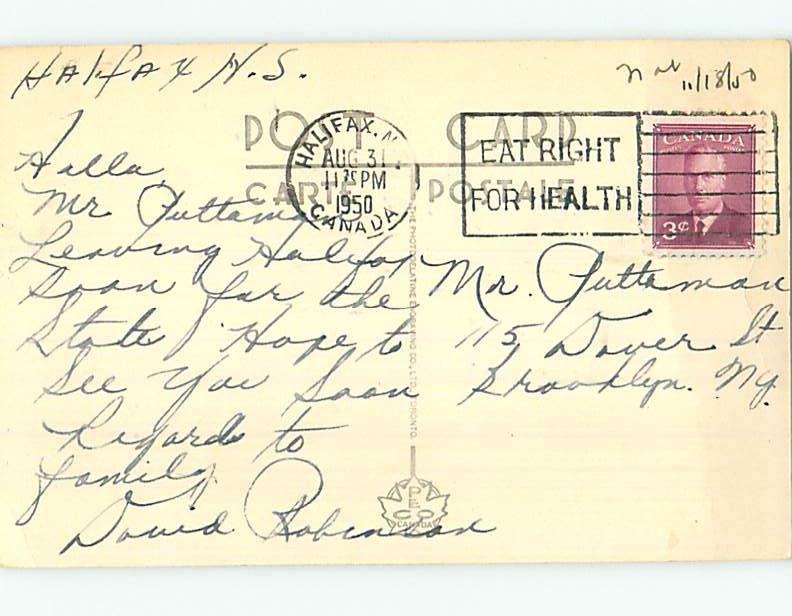 Halifax N.S.
11/18/50
POST CARD
CARTE POSTALE
HALIFAX, N
AUG 31
11 PM
1950
CANADA
EAT RIGHT
FOR HEALTH
CANADA
3¢
Hallo
Mr Puttaman
Leaving Halifax
soon for the
State Hope to
See You Soon
Regards to
family
David Robinson
Mr. Puttaman
115 Dover St
Brooklyn. Ny.
THE PHOTOGELATINE ENGRAVING CO., LTD., TORONTO.
PECO
CANADA